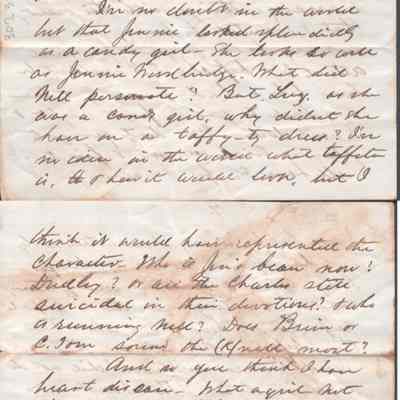 I'm no doubt in the world
but that Jennie looked splendidly
as a candy girl - She looks so well
as Jennie Woodbridge. What did
Nell personate? But, Lucy, as she
was a candy girl, why didn't she
have on a taffy-ty dress? I'm
no idea in the world what taffeta
is, & how it would look, but I
think it would have represented the
character - Who is Jen's beau now?
Dudley? or are the Charles still
suicidal in their devotions? & who
is running Nell? Does Brim or
C. Tom sound the (K)nell most?
And so you think I have
heart disease - What a girl not